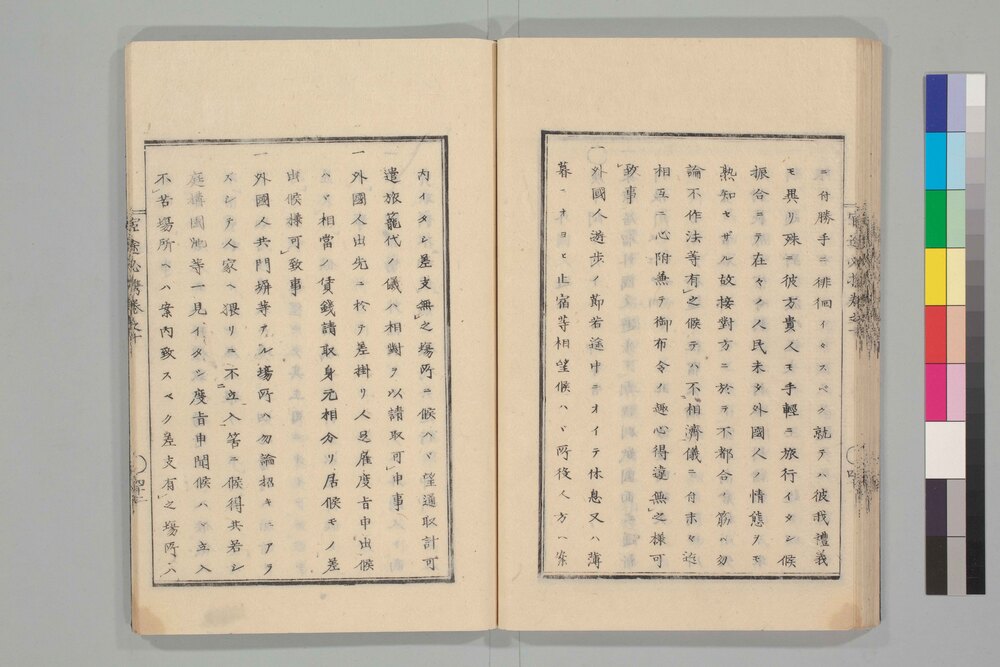 ニ付勝手ニ徘徊イタスベク就テハ彼我禮義
モ異リ殊ニ彼方貴人モ手輕ニ旅行イタシ候
振合ニテ在々ノ人民未タ外國人ノ情態ヲモ
熟知セザル故接對方ニ於テ不都合ノ筋ハ勿
論不作法等有之候テハ不相濟儀ニ付末々迄
相互ニ心附兼テ御布令ノ趣心得違無之樣可
致事
一外國人遊歩ノ節若途中ニオイテ休息又ハ薄
暮ニオヨヒ止宿等相望候ハヽ所役人方ヘ案
内イタシ差支無之場所ニ候ハヽ望通取計可
遣旅籠代ノ儀ハ相對ヲ以請取可申事
一外國人出先ニ於テ差掛リ人足雇度旨申出候
ハヽ相當ノ賃錢請取身元相分リ居候モノ差
出候樣可致事
一外國人共門塀等アル場所ハ勿論招キニアラ
スシテ人家ヘ猥リニ不立入筈ニ候得共若シ
庭構園池等一見イタシ度旨申聞候ハヽ立入
不苦場所ヘハ案内致スヘク差支有之場所ハ